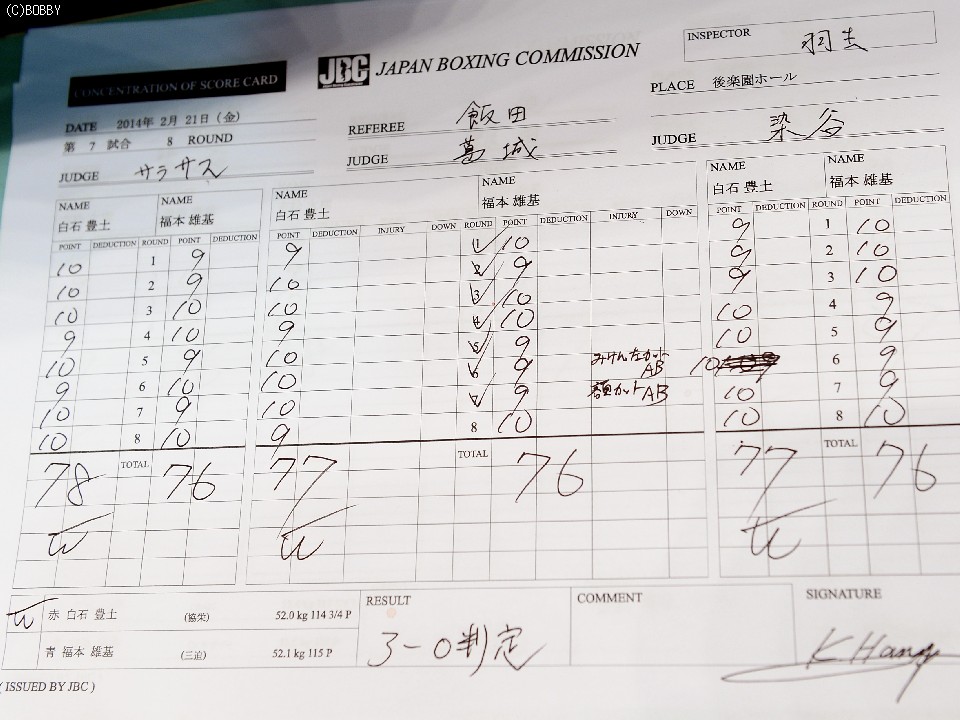 (C)BOBBY
CONCENTRATION OF SCORE CARD
JBC JAPAN BOXING COMMISSION
INSPECTOR 羽生
DATE 2014年 2月 21日 (金)
第 7 試合 8 ROUND
REFEREE 飯田
PLACE 後楽園ホール
JUDGE サラサス
JUDGE 葛城
JUDGE 染谷
NAME NAME NAME NAME NAME NAME
白石 豊土 福本 雄基 白石 豊土 福本 雄基 白石 豊土 福本 雄基
POINT DEDUCTION ROUND POINT DEDUCTION POINT DEDUCTION INJURY DOWN ROUND POINT DEDUCTION INJURY DOWN POINT DEDUCTION ROUND POINT DEDUCTION
10 1 9 9 1 10 9 1 10
10 2 9 10 2 9 9 2 10
10 3 10 10 3 10 9 3 10
9 4 10 9 4 10 10 4 9
10 5 9 10 5 9 10 5 9
9 6 10 10 6 9 みけん左カット AB 10 6 9
10 7 9 10 7 9 額カット AB 10 7 9
10 8 10 9 8 10 10 8 10
78 TOTAL 76 77 TOTAL 76 77 TOTAL 76
W W W
W 赤 白石 豊土 (協栄) 52.0 kg 114 3/4 P
青 福本 雄基 (三迫) 52.1 kg 115 P
RESULT
3-0判定
COMMENT
SIGNATURE
( ISSUED BY JBC )